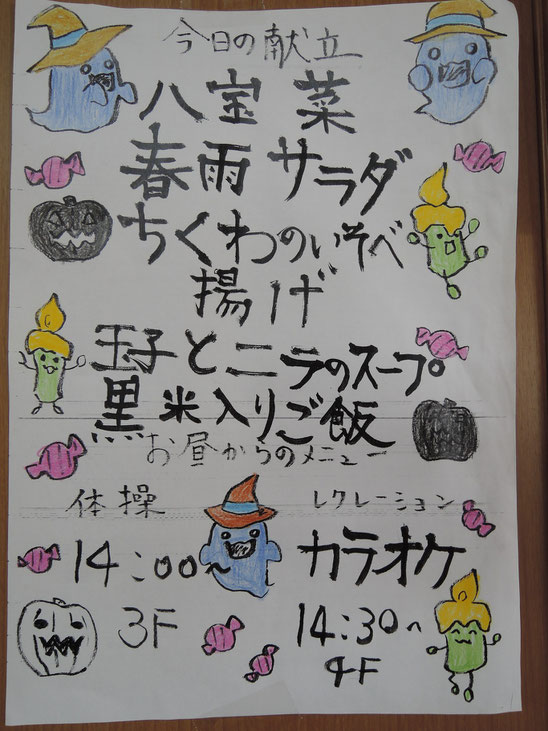 今日の献立
八宝菜
春雨サラダ
ちくわのいそべ
揚げ
玉子とニラのスープ
黒米入りご飯
お昼からのメニュー
体操
14:00~
3F
レクレーション
カラオケ
14:30~
4F